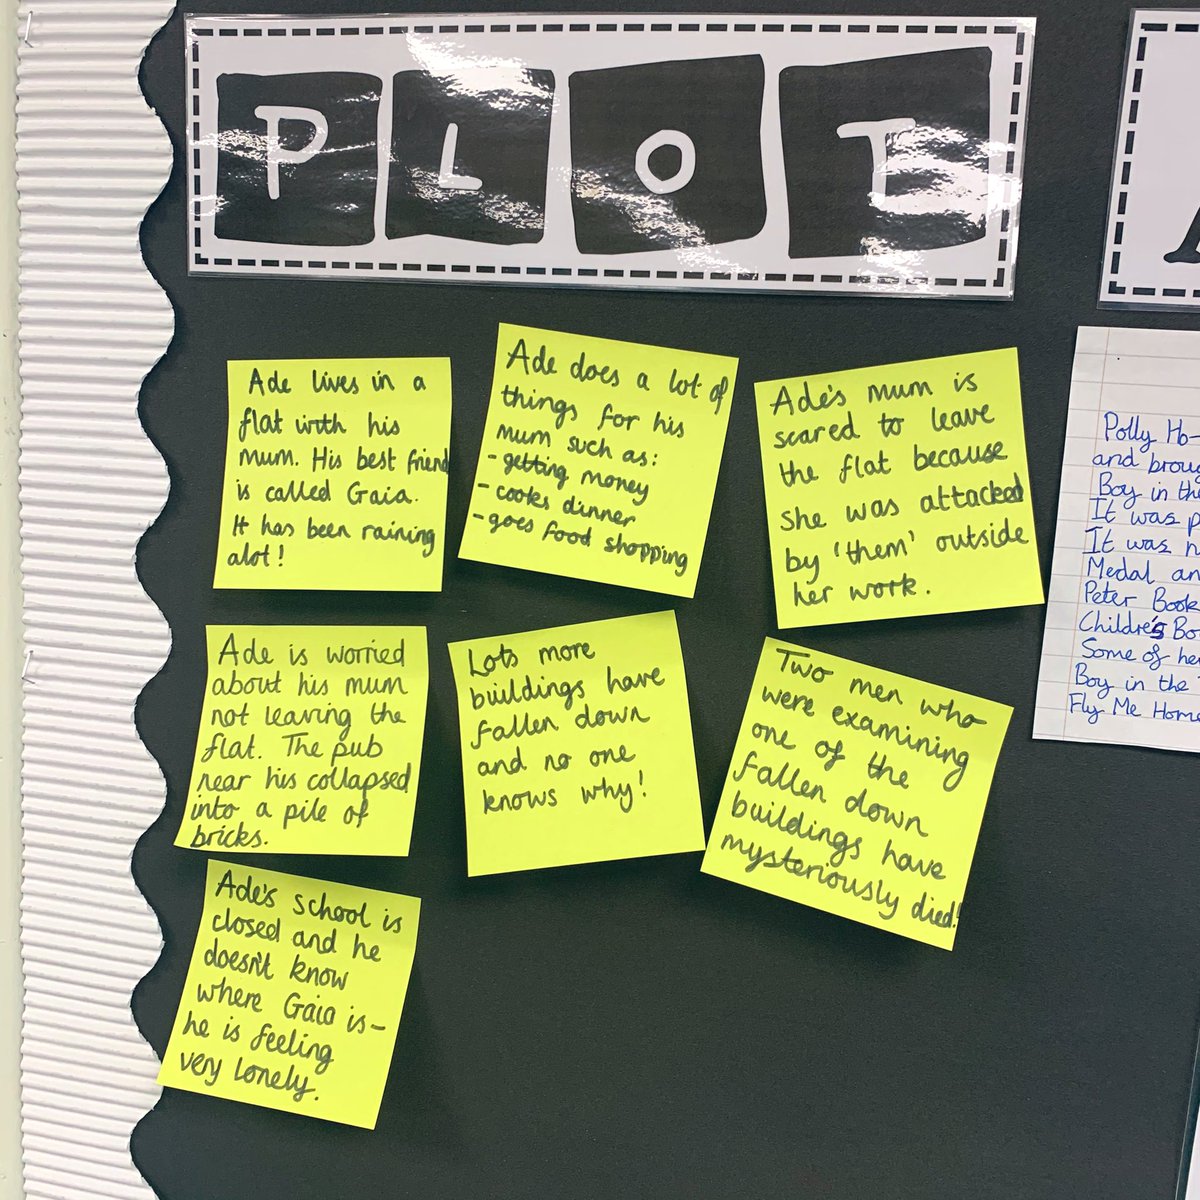 PLOT
Ade lives in a
flat with his
mum. His best friend
is called Gaia.
It has been raining
alot!
Ade does a lot of
things for his
mum such as:
- getting money
- cooks dinner
- goes food shopping
Ade's mum is
scared to leave
the flat because
she was attacked
by 'them' outside
her work.
Ade is worried
about his mum
not leaving the
flat. The pub
near his collapsed
into a pile of
bricks.
Lots more
buildings have
fallen down
and no one
knows why!
Two men who
were examining
one of the
fallen down
buildings have
mysteriously died!
Ade's school is
closed and he
doesn't know
where Gaia is-
he is feeling
very lonely.
Polly Ho-
and broug
Boy in the
It was p
It was n
Medal an
Peter Book
Childre's Bo
Some of he
Boy in the
Fly Me Home